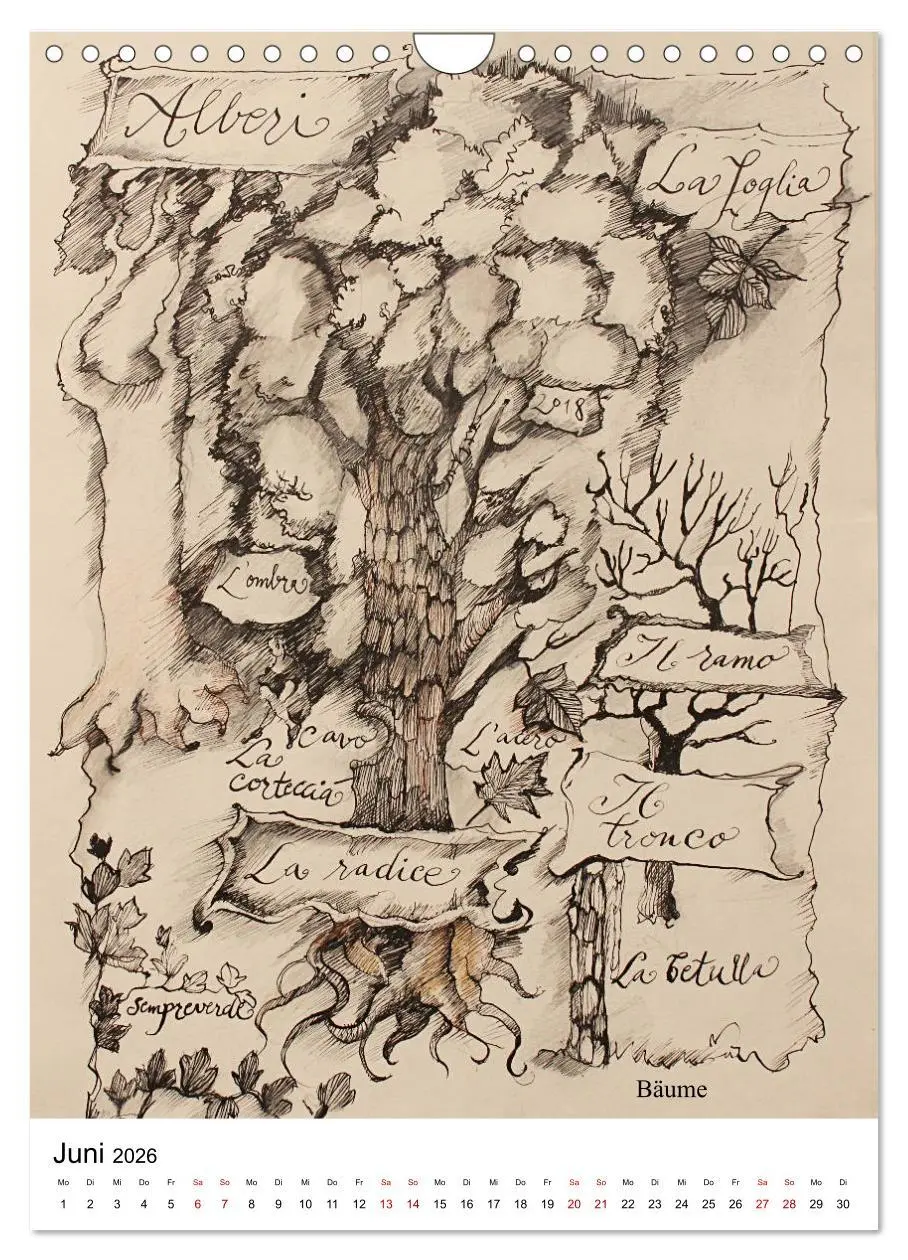 Alberi
La foglia
2018
L'ombra
Il ramo
Cavo
La
corteccia
L'acero
Il
tronco
La radice
La betulla
Sempreverde
Bäume
Juni 2026
Mo Di Mi Do Fr Sa So Mo Di Mi Do Fr Sa So Mo Di Mi Do Fr Sa So Mo Di Mi Do Fr Sa So Mo Di
1 2 3 4 5 6 7 8 9 10 11 12 13 14 15 16 17 18 19 20 21 22 23 24 25 26 27 28 29 30